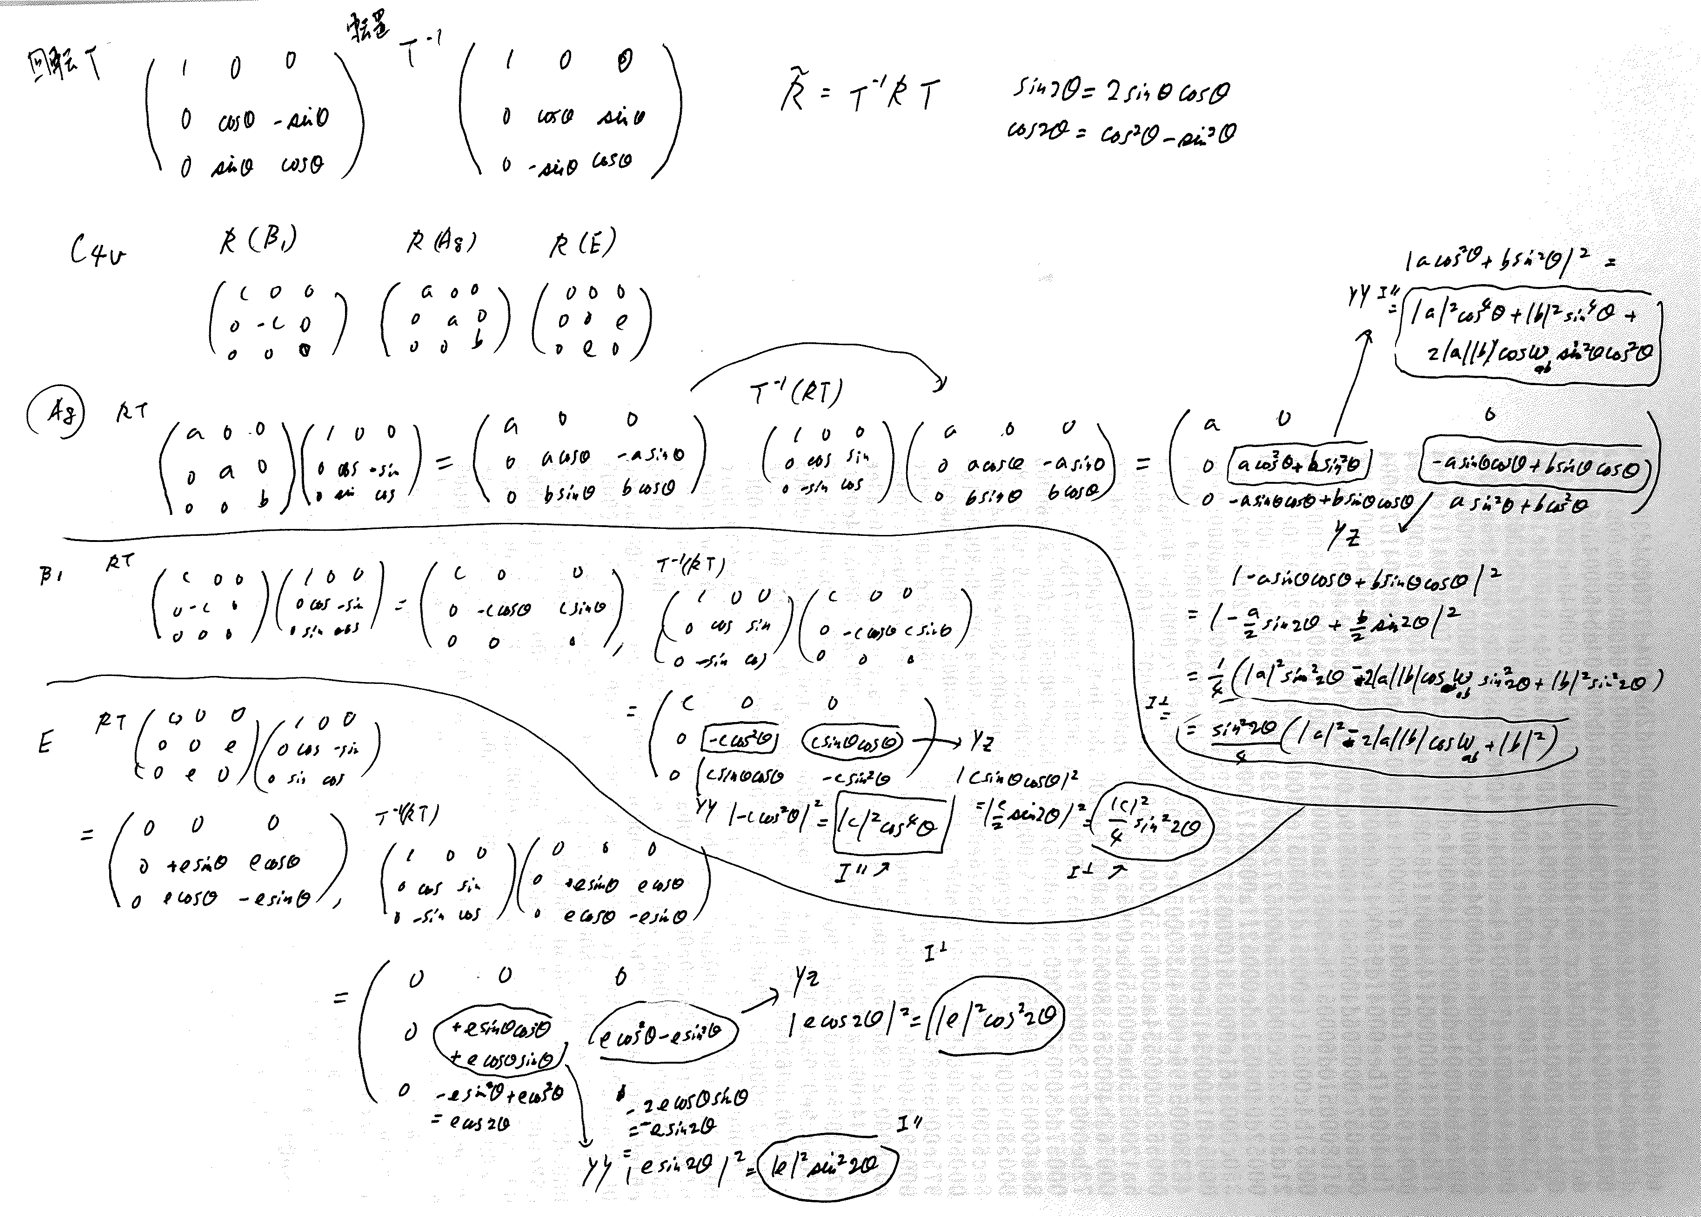 回転T ( 1 0 0 / 0 cosθ -sinθ / 0 sinθ cosθ ) 転置 T⁻¹ ( 1 0 0 / 0 cosθ sinθ / 0 -sinθ cosθ )
R̃ = T⁻¹RT
sin2θ = 2sinθcosθ
cos2θ = cos²θ - sin²θ
C4v
R(B₁) R(Ag) R(E)
( c 0 0 / 0 -c 0 / 0 0 0 ) ( a 0 0 / 0 a 0 / 0 0 b ) ( 0 0 0 / 0 0 e / 0 e 0 )
Ag RT
( a 0 0 / 0 a 0 / 0 0 b ) ( 1 0 0 / 0 cos -sin / 0 sin cos ) = ( a 0 0 / 0 acosθ -asinθ / 0 bsinθ bcosθ )
T⁻¹(RT)
( 1 0 0 / 0 cos sin / 0 -sin cos ) ( a 0 0 / 0 acosθ -asinθ / 0 bsinθ bcosθ ) = ( a 0 0 / 0 acos²θ+bsin²θ -asinθcosθ+bsinθcosθ / 0 -asinθcosθ+bsinθcosθ asin²θ+bcos²θ )
|acos²θ+bsin²θ|² =
YY I∥ = |a|²cos⁴θ+|b|²sin⁴θ +
2|a||b|cosω_ab sin²θcos²θ
YZ
|-asinθcosθ+bsinθcosθ|²
= |-a/2 sin2θ + b/2 sin2θ|²
= 1/4 (|a|²sin²2θ - 2|a||b|cosω_ab sin²2θ + |b|²sin²2θ)
I⊥ = = sin²2θ/4 (|a|² - 2|a||b|cosω_ab + |b|²)
B₁ RT
( c 0 0 / 0 -c 0 / 0 0 0 ) ( 1 0 0 / 0 cos -sin / 0 sin cos ) = ( c 0 0 / 0 -ccosθ csinθ / 0 0 0 ),
T⁻¹(RT)
( 1 0 0 / 0 cos sin / 0 -sin cos ) ( c 0 0 / 0 -ccosθ csinθ / 0 0 0 )
= ( c 0 0 / 0 -ccos²θ csinθcosθ / 0 csinθcosθ -csin²θ )
YY |-ccos²θ|² = |c|²cos⁴θ
I∥
YZ
|csinθcosθ|²
= |c/2 sin2θ|² = |c|²/4 sin²2θ
I⊥
E RT ( 0 0 0 / 0 0 e / 0 e 0 ) ( 1 0 0 / 0 cos -sin / 0 sin cos )
= ( 0 0 0 / 0 +esinθ ecosθ / 0 ecosθ -esinθ ),
T⁻¹(RT)
( 1 0 0 / 0 cos sin / 0 -sin cos ) ( 0 0 0 / 0 +esinθ ecosθ / 0 ecosθ -esinθ )
= ( 0 0 0 / 0 +esinθcosθ +ecosθsinθ ecos²θ-esin²θ / 0 -esin²θ+ecos²θ = ecos2θ -2ecosθsinθ = -esin2θ
YZ I⊥
|ecos2θ|² = |e|²cos²2θ
I∥
YY |esin2θ|² = |e|²sin²2θ